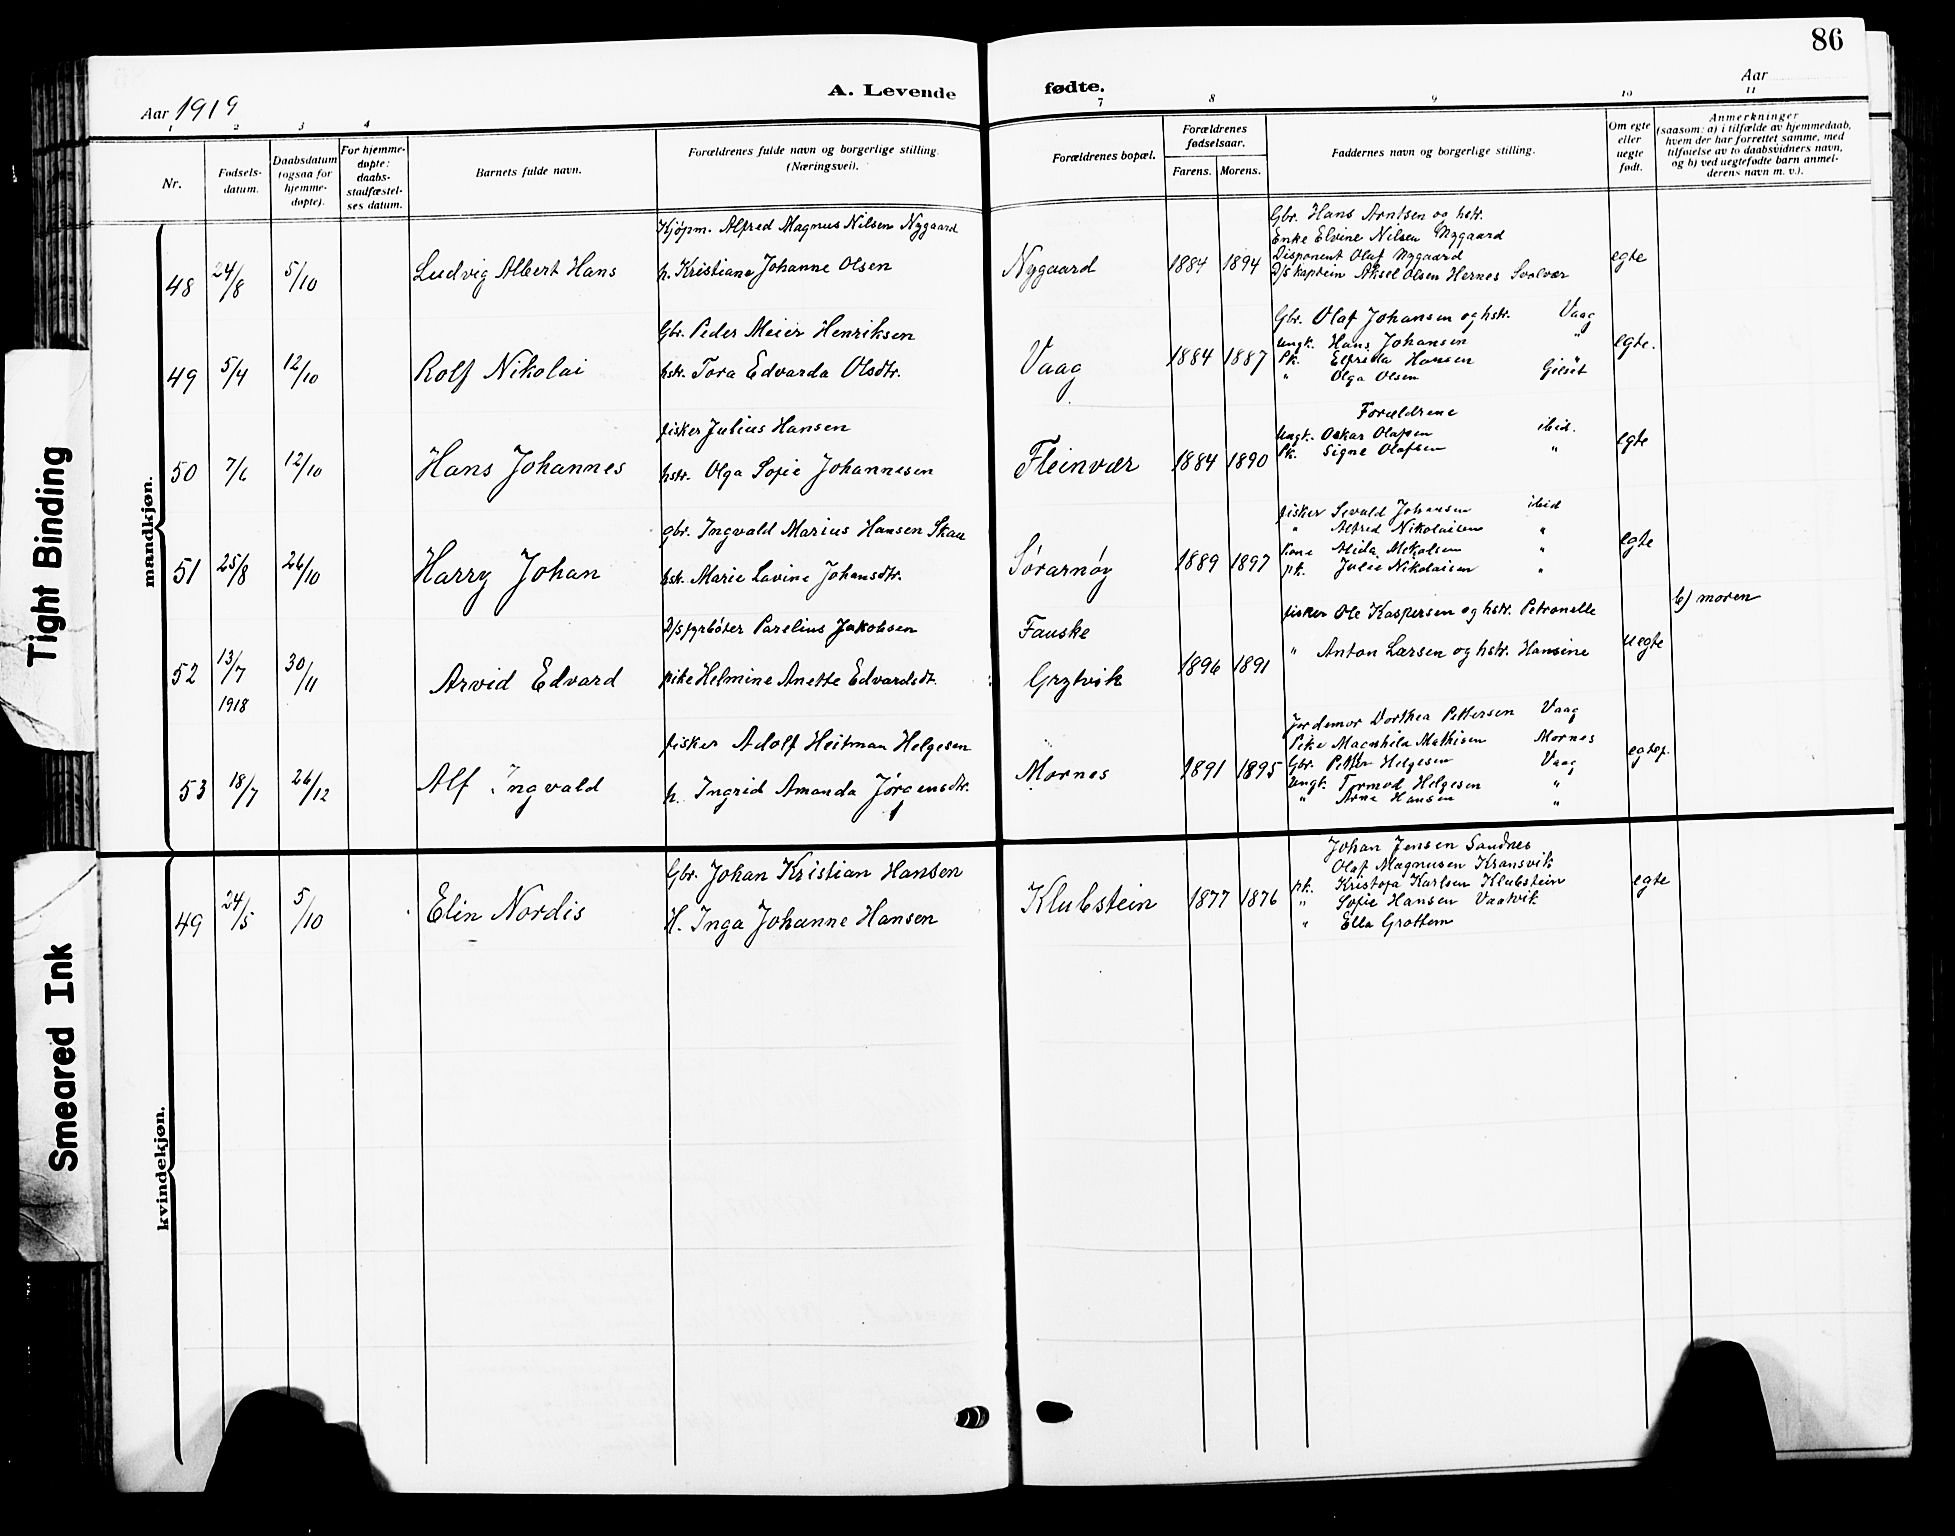 86
Aar 1919
A. Levende fødte.
Aar
1 2 3 4 7 8 9 10 11
Nr.
Fødsels-
datum.
Daabsdatum
(ogsaa for
hjemme-
døpte).
For hjemme-
døpte:
daabs-
stadfæstel-
ses datum.
Barnets fulde navn.
Forældrenes fulde navn og borgerlige stilling
(Næringsvei).
Forældrenes bopæl.
Forældrenes
fødselsaar.
Farens. Morens.
Faddernes navn og borgerlige stilling.
Om egte
eller
uegte
født.
Anmerkninger
(saasom: a) i tilfælde av hjemmedaab,
hvem der har forrettet samme, med
tilføielse av to daabsvidners navn,
og b) ved uegtefødte barn anmel-
derens navn m. v.).
mandkjøn.
48 24/8 5/10 Ludvig Albert Hans
Kjøpm. Alfred Magnus Nilsen Nygaard
h. Kristiane Johanne Olsen
Nygaard 1884 1894
Gbr. Hans Arntsen og hstr.
Enke Elvine Nilsen Nygaard
Disponent Olaf Nygaard
D/S kaptein Aksel Olsen Hernes Svolvær
egte
49 5/4 12/10 Rolf Nikolai
Gbr. Peder Meier Henriksen
hstr. Tora Edvarda Olsdtr.
Vaag 1884 1887
Gbr. Olaf Johansen og hstr. Vaag
Ungk. Hans Johansen "
Pk. Elfrida Hansen
" Olga Olsen Gilset
egte.
50 7/6 12/10 Hans Johannes
fisker Julius Hansen
hstr. Olga Sofie Johannesen
Fleinvær 1884 1890
Forældrene
Ungk. Oskar Olafsen ibid.
Pk. Signe Olafsen "
egte
51 25/8 26/10 Harry Johan
gbr. Ingvald Marius Hansen Skau
hstr. Marie Lavine Johansdtr.
Sørarnøy 1889 1897
fisker Sevald Johansen ibid
" Alfred Nikolaisen "
Kone Alida "
pk. Julie Nikolaisen "
egte
52 13/7 1918 30/11 Arvid Edvard
D/S fyrbøter Parelius Jakobsen
pike Helmine Anette Edvardsdt.
Fauske
Grytvik 1896 1891
fisker Ole Kaspersen og hstr. Petronelle
" Anton Larsen og hstr. Hansine
uegte
b) moren
53 18/7 26/12 Alf Ingvald
fisker Adolf Heitman Helgesen
h. Ingrid Amanda Jørgensdtr.
Mornes 1891 1895
Jordemor Dorthea Pettersen Vaag
Pike Magnhild Mathisen Mornes
Gbr. Petter Helgesen Vaag
Ungk. Tormod Helgesen "
" Arne Hansen "
egtef.
kvindekjøn.
49 24/5 5/10 Elin Nordis
Gbr. Johan Kristian Hansen
H. Inga Johanne Hansen
Klubstein 1877 1876
Johan Jensen Sandnes
Olaf Magnusen Kransvik
pk. Kristofa Karlsen Klubstein
" Sofie Hansen Vaatvik
" Ella Grottem
egte
Tight Binding
Smeared Ink